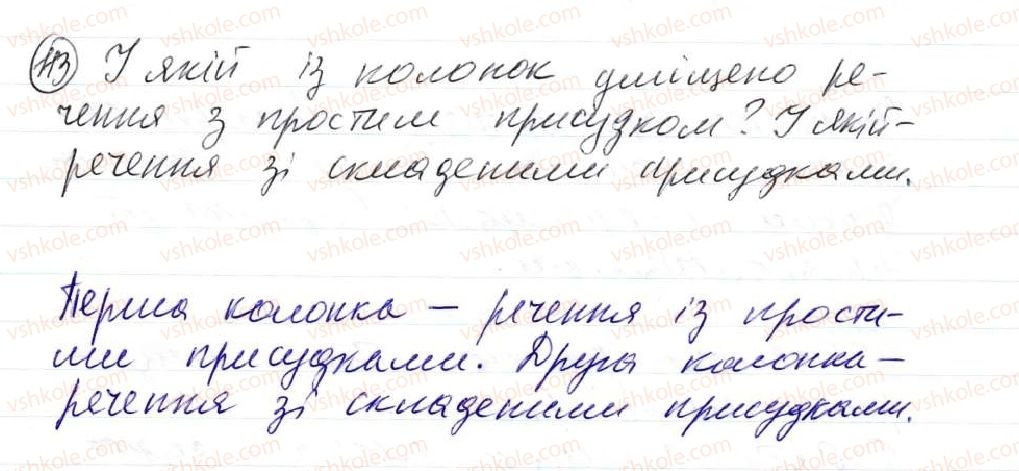 113 У якій із колонок уміщено ре-
чення з простим присудком? У якій -
речення зі складеними присудками.
Перша колонка – речення із прости-
ми присудками. Друга колонка –
речення зі складеними присудками.